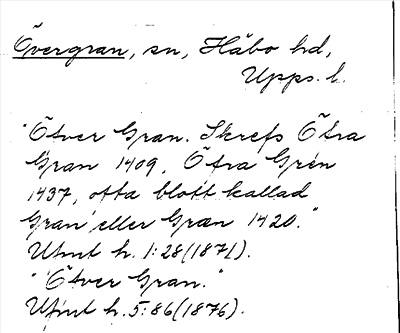 Övergran, sn, Håbo hd,
Upps. l.
"Öfver Gran. Skrefs Öfra
Gran 1409, Öfra Gren
1437, ofta blott kallad
Gran eller Græn 1420."
Ufmt h. 1:28 (1871).
"Öfver Gran."
Ufmt h. 5:86 (1876).